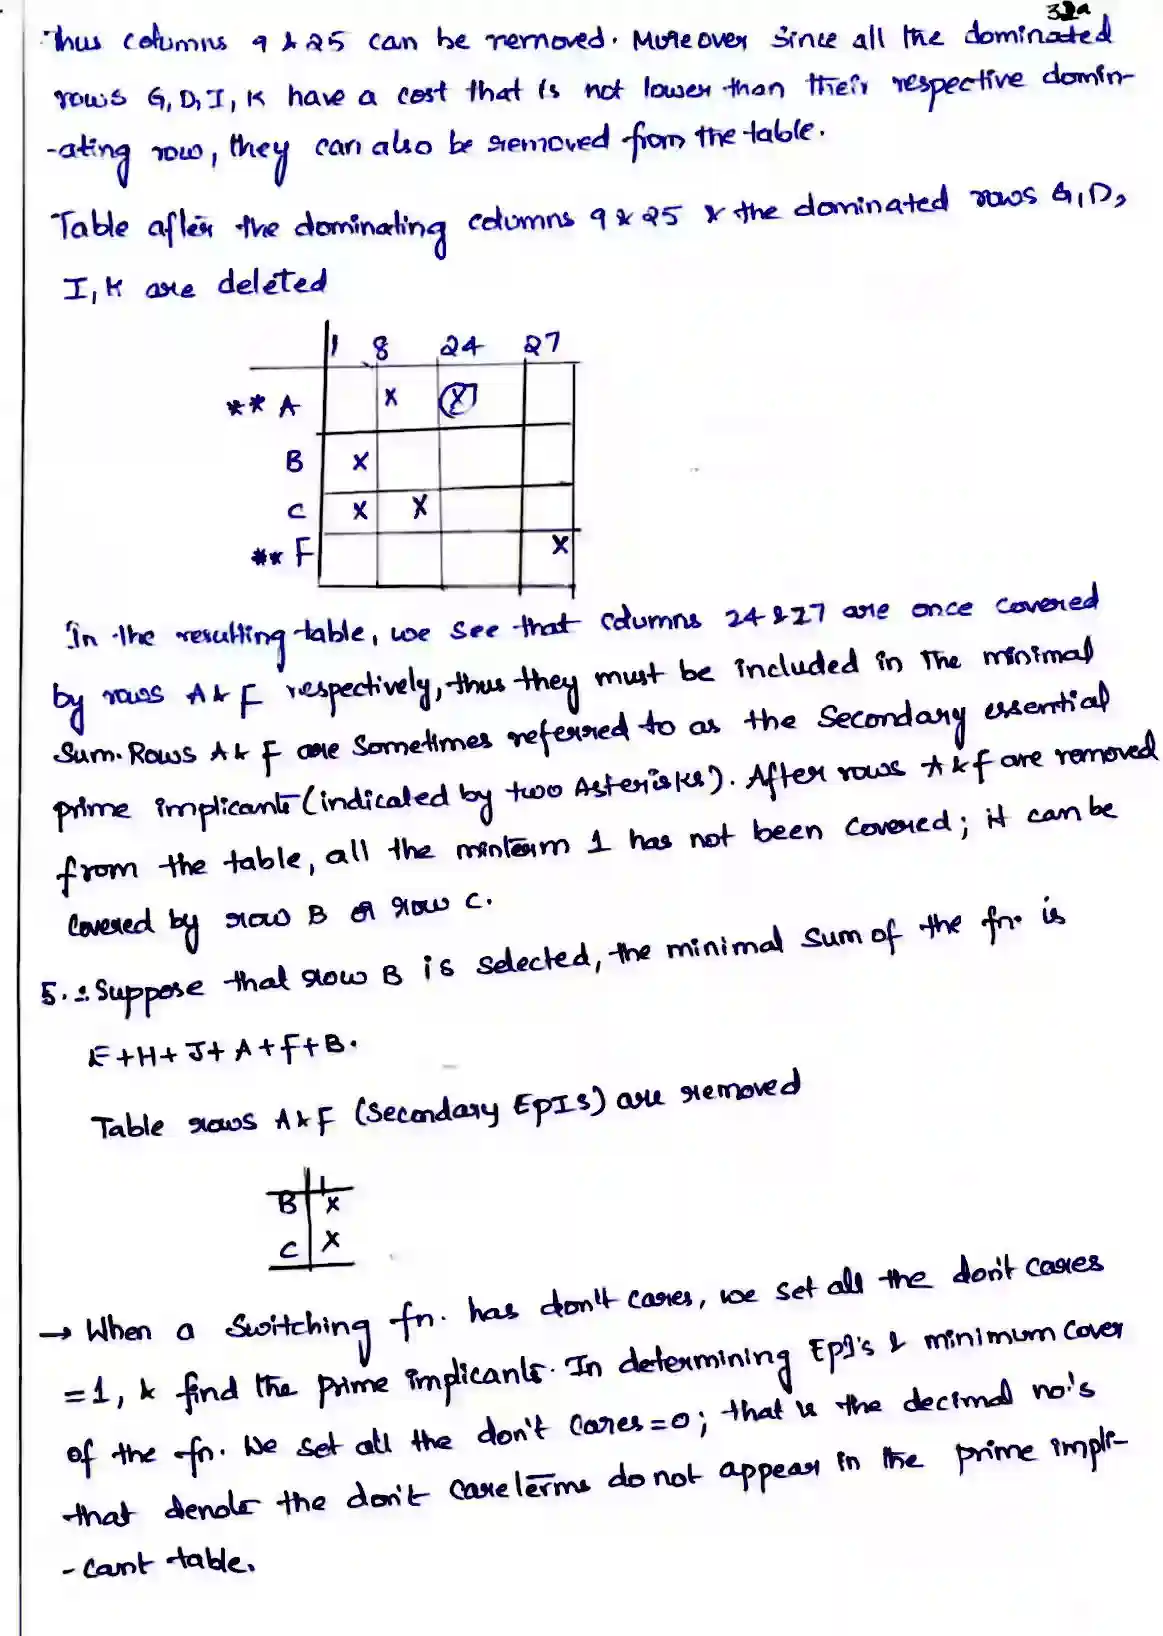 32a
Thus columns 9 & 25 can be removed. Moreover since all the dominated
rows G, D, I, K have a cost that is not lower than their respective domin-
-ating row, they can also be removed from the table.
Table after the dominating columns 9 & 25 & the dominated rows G, D,
I, K are deleted
1 8 24 27
** A x x
B x
C x x
** F x
In the resulting table, we see that columns 24 & 27 are once covered
by rows A & F respectively, thus they must be included in the minimal
sum. Rows A & F are sometimes referred to as the secondary essential
prime implicants (indicated by two Asterisks). After rows A & f are removed
from the table, all the minterm 1 has not been covered; it can be
covered by row B or row C.
5. ∴ Suppose that row B is selected, the minimal sum of the fn. is
E + H + J + A + F + B.
Table rows A & F (Secondary EPIs) are removed
1
B x
C x
→ When a switching fn. has don't cares, we set all the don't cares
= 1, & find the prime implicants. In determining EPI's & minimum cover
of the fn. We set all the don't cares = 0; that is the decimal no.'s
that denote the don't care terms do not appear in the prime impli-
- cant table.